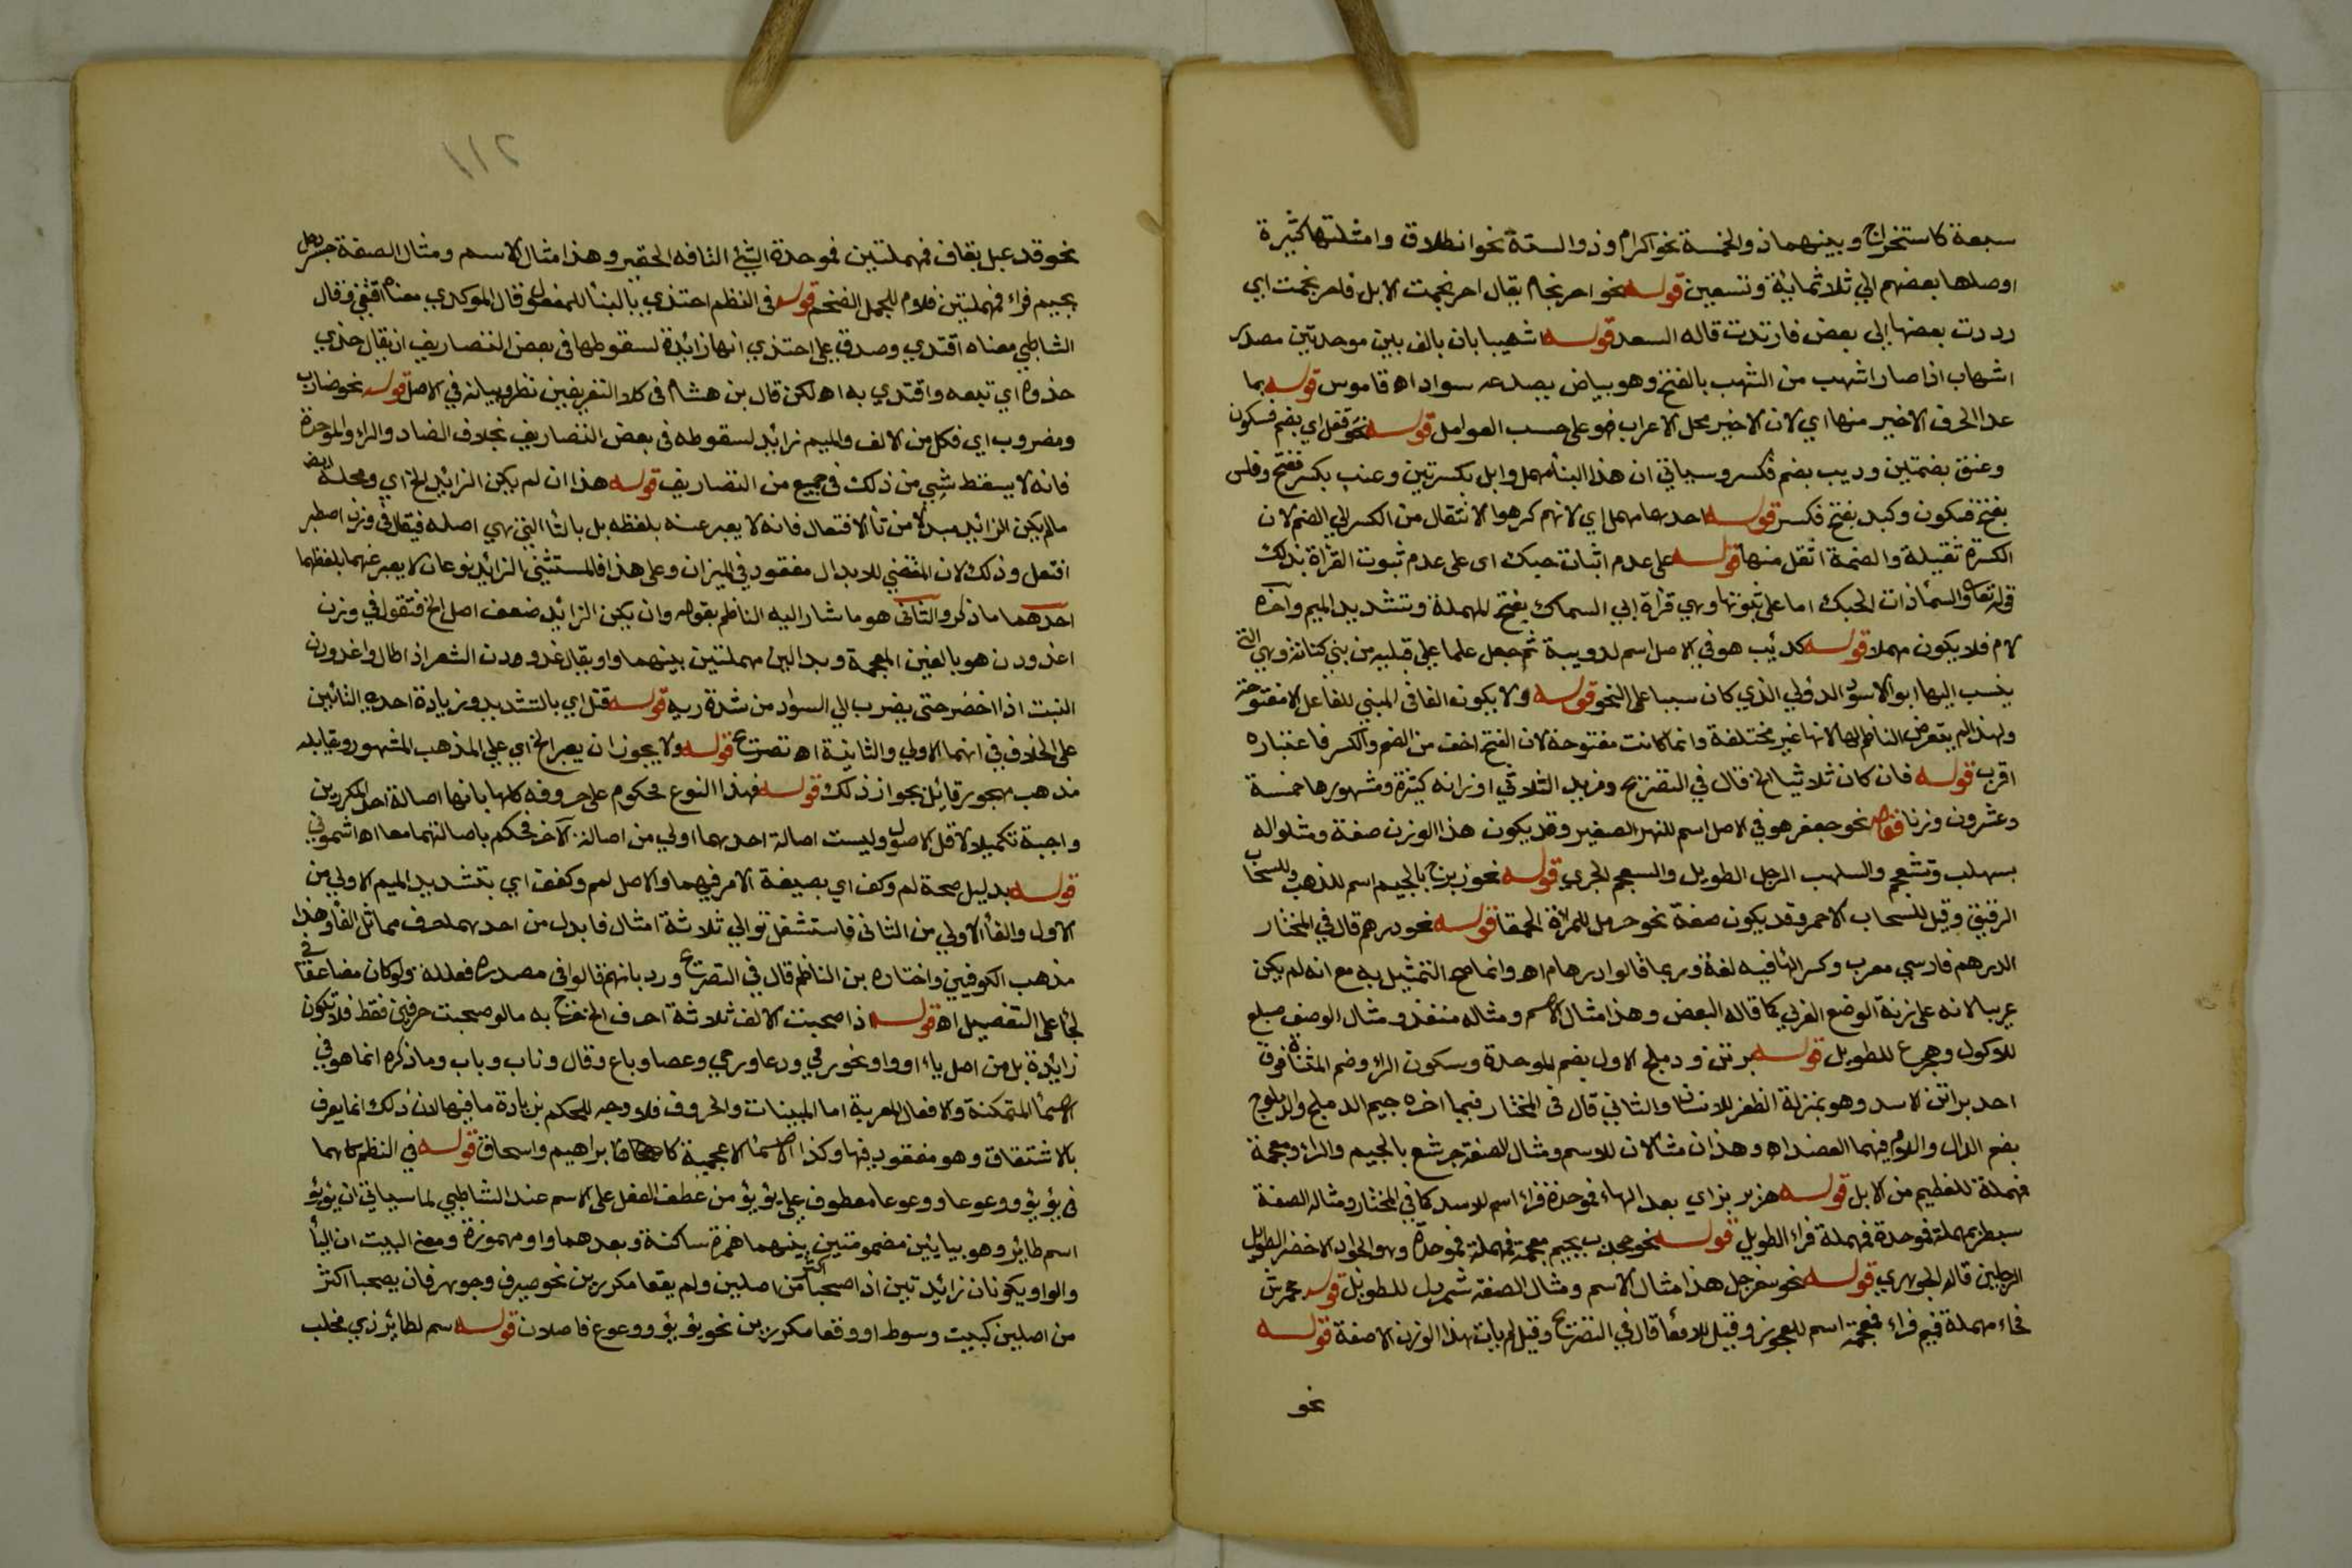 سبعة كاستخراج وبينهما ذو الخمسة نحو اكرام وذو الستة نحو انطلاق وامثلتها كثيرة
اوصلها بعضهم الي ثلاثمائة وتسعين قوله نحو احرنجام يقال احرنجمت الابل فاحرنجمت اي
رددت بعضها الي بعض فارتدت قاله السعد قوله اشهيباب ان بالف بين موحدتين مصدر
اشهاب اذا صار اشهب من الشهب بالفتح وهو بياض يصدعه سواد اه قاموس قوله بما
عدا الحرف الاخير منها اي لان الاخير محل الاعراب فهو على حسب العوامل قوله نحو قفل اي بضم فسكون
وعنق بضمتين وديب بضم فكسر وسياتي ان هذا البنا مهمل وابل بكسرتين وعنب بكسر ففتح وفلس
بفتح فسكون وكبد بفتح فكسر قوله احدهما مهمل اي لانهم كرهوا الانتقال من الكسر الي الضم لان
الكسرة ثقيلة والضمة اثقل منها قوله على عدم اثبات حبك اى على عدم ثبوت القراة بذلك
في قوله تعالى والسما ذات الحبك اما على ثبوتها وهي قراة ابي السماك بفتح المهملة وتشديد الميم واخره
لام فلا يكون مهملا قوله كدئب هو في الاصل اسم لدويبة ثم جعل علما علي قبيله من بني كنانة وهي التي
ينسب اليها ابو الاسود الدولي الذي كان سببا على النحو قوله ولا يكون الفا في المبني للفاعل الا مفتوحة
ولهذا لم يتعرض الناظم لها لانها غير مختلفة وانما كانت مفتوحة لان الفتح اخف من الضم والكسر فاعتباره
اقرب قوله فان كان ثلاثيا الخ قال في التصريح ومزيد الثلاثي اوزانه كثيرة ومشهورها خمسة
وعشرون وزنا قوله نحو جعفر هو في الاصل اسم للنهر الصغير وقد يكون هذا الوزن صفة ومثلوا له
بسهلب وشجعم والسلهب الرجل الطويل والشجعم الجري قوله نحو زبرج بالجيم اسم للذهب وللسحاب
الرقيق وقيل للسحاب الاحمر وقد يكون صفة نحو حرمل للمراة الحمقا قوله نحو درهم قال في المختار
الدرهم فارسي معرب وكسر الها فيه لغة وربما قالوا درهام اه وانما صح التمثيل به مع انه لم يكن
عربيا لانه على زنة الوضع العربي كما قاله البعض وهذا مثال الاسم ومثاله منفذ ومثال الوصف هبلع
للاكول وهجرع للطويل قوله برثن ودملج الاول بضم الموحدة وسكون الراء وضم المثناة فوق
احد براثن الاسد وهو بمنزلة الظفر للانسان والثاني قال فى المختار فيما اخره جيم الدملج والدملوج
بضم الدال واللام فيهما العضد اه وهذان مثالان للاسم ومثال الصفة جرشع بالجيم والراء ومعجمة
فمهملة للعظيم من الابل قوله هزبر بزاي بعد الهاء فموحدة فراء اسم للاسد كما في المختار ومثاله الصفة
سبطر بمهملة فموحدة فمهملة فراء الطويل قوله نحو جخدب بجيم فمعجمة فمهملة فموحدة وهو الجراد الاخضر الطويل
الرجلين قاله الجوهري قوله نحو سفرجل هذا مثال الاسم ومثال الصفة شمردل للطويل قوله جحمرش
فحاء مهملة فميم فراء فمعجمة اسم للعجوز وقيل للافعا قال في التصريح وقيل لم يات هذا الوزن الا صفة قوله
نحو
١١٢
نحو قذعمل بقاف فمهملتين فموحدة الشئ التافه الحقير وهذا مثال الاسم ومثال الصفة جردحل
بجيم فراء فمهملتين فلام للجمل الضخم قوله فى النظم احتذي بالبنا للمفعول وقال المكودي معناه اقتفي وقال
الشاطبي معناه اقتدي وصدق علي احتذي انها زائدة لسقوطها في بعض التصاريف ان يقال حذي
حذوه اي تبعه واقتدي به اه لكن قال بن هشام في كلا التعريفين نظر وبيانه في الاصل قوله نحو ضارب
ومضروب اي فكل من الالف والميم زائد لسقوطه فى بعض التصاريف بخلاف الضاد والراء والموحدة
فانه لا يسقط شيي من ذلك في جميع من التصاريف قوله هذا ان لم يكن الزائد الخ اي ومحله ايضا
مالم يكن الزائد مبدلا من تا الافتعال فانه لا يعبر عنه بلفظه بل بالتا التي هي اصله فيقال في وزن اصطبر
افتعل وذلك لان المقتضي للابدال مفقود في الميزان وعلى هذا فالمستثنى الزائد نوعان لا يعبر عنهما بلفظهما
احدهما ما ذكر والثاني هو ما شار اليه الناظم بقوله وان يكن الزائد ضعف اصل الخ فتقول في وزن
اغدودن هو بالغين المعجمة وبدالين مهملتين بينهما واو يقال غدودن الشعر اذا طال واغدودن
النبت اذا اخضر حتى يضرب الي السواد من شدة ريه قوله قتل اي بالتشديد وزيادة احدي التائين
على الخلاف في انهما الاولي والثانية اه تصريح قوله ولا يجوز ان يعبر الخ اي علي المذهب المشهور ويقابله
مذهب مهجور قائل بجواز ذلك قوله فهذا النوع محكوم على حروفه كلها بانها اصالة احد المكررين
واجبة تكميلا لاقل الاصول وليست اصالة احدهما اولي من اصالة الاخر فحكم باصالتهما معا اه اشموني
قوله بدليل صحة لم وكف اي بصيغة الامر فيهما والاصل لمم وكفف اي بتشديد الميم الاولي من
الاول والفا الاولي من الثانى فاستثقل توالي ثلاثة امثال فابدل من احدهما حرف مماثل الفا وهذا
مذهب الكوفيين واختاره بن الناظم قال في التصريح ورد بانهم قالوا في مصدره فعللة ولو كان مضاعفا في
لجا على التفعيل اه قوله اذا صحبت الالف ثلاثة احرف الخ خرج به ما لو صحبت حرفين فقط فلا تكون
زائدة بل من اصل ياء او واو نحو رمي ودعا ورحي وعصا وباع وقال وناب وباب وما ذكره انما هو في
الاسما المتمكنة والافعال المعربة اما المبنيات والحروف فلا وجه للحكم بزيادة ما فيها لان ذلك انما يعرف
بالاشتقاق وهو مفقود فيها وكذا الاسما الاعجمية كابراهيم واسحاق قوله في النظم كاهما
فى يؤيؤ ووعوعا ووعوعا معطوف علي يؤيؤ من عطف الفعل على الاسم عند الشاطبي لما سياتي ان يؤيؤ
اسم طائر وهو بيائين مضمومتين بينهما همزة ساكنة وبعدهما واو مهموزة ومعنى البيت ان اليا
والواو يكونان زائدتين اذا صحبتا اكثر من اصلين ولم يقعا مكررين نحو صيرف وجوهر فان يصحبا اكثر
من اصلين كبيت وسوط او وقعا مكررين نحو يؤيؤ ووعوع فاصلان قوله اسم لطائر ذي مخلب